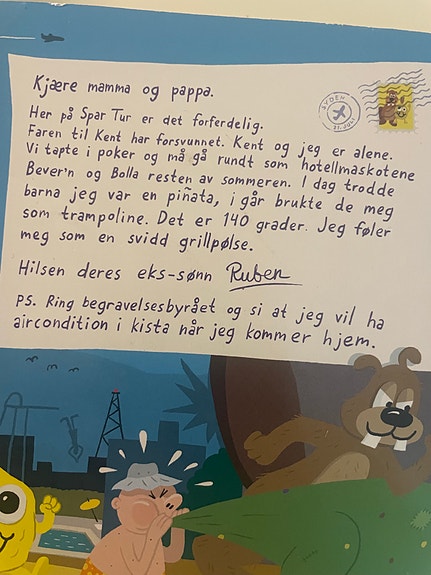 Kjære mamma og pappa.
SYDEN
21. JULI
Her på Spar Tur er det forferdelig.
Faren til Kent har forsvunnet. Kent og jeg er alene.
Vi tapte i poker og må gå rundt som hotellmaskotene
Bever'n og Bolla resten av sommeren. I dag trodde
barna jeg var en piñata, i går brukte de meg
som trampoline. Det er 140 grader. Jeg føler
meg som en svidd grillpølse.
Hilsen deres eks-sønn Ruben
PS. Ring begravelsesbyrået og si at jeg vil ha
aircondition i kista når jeg kommer hjem.